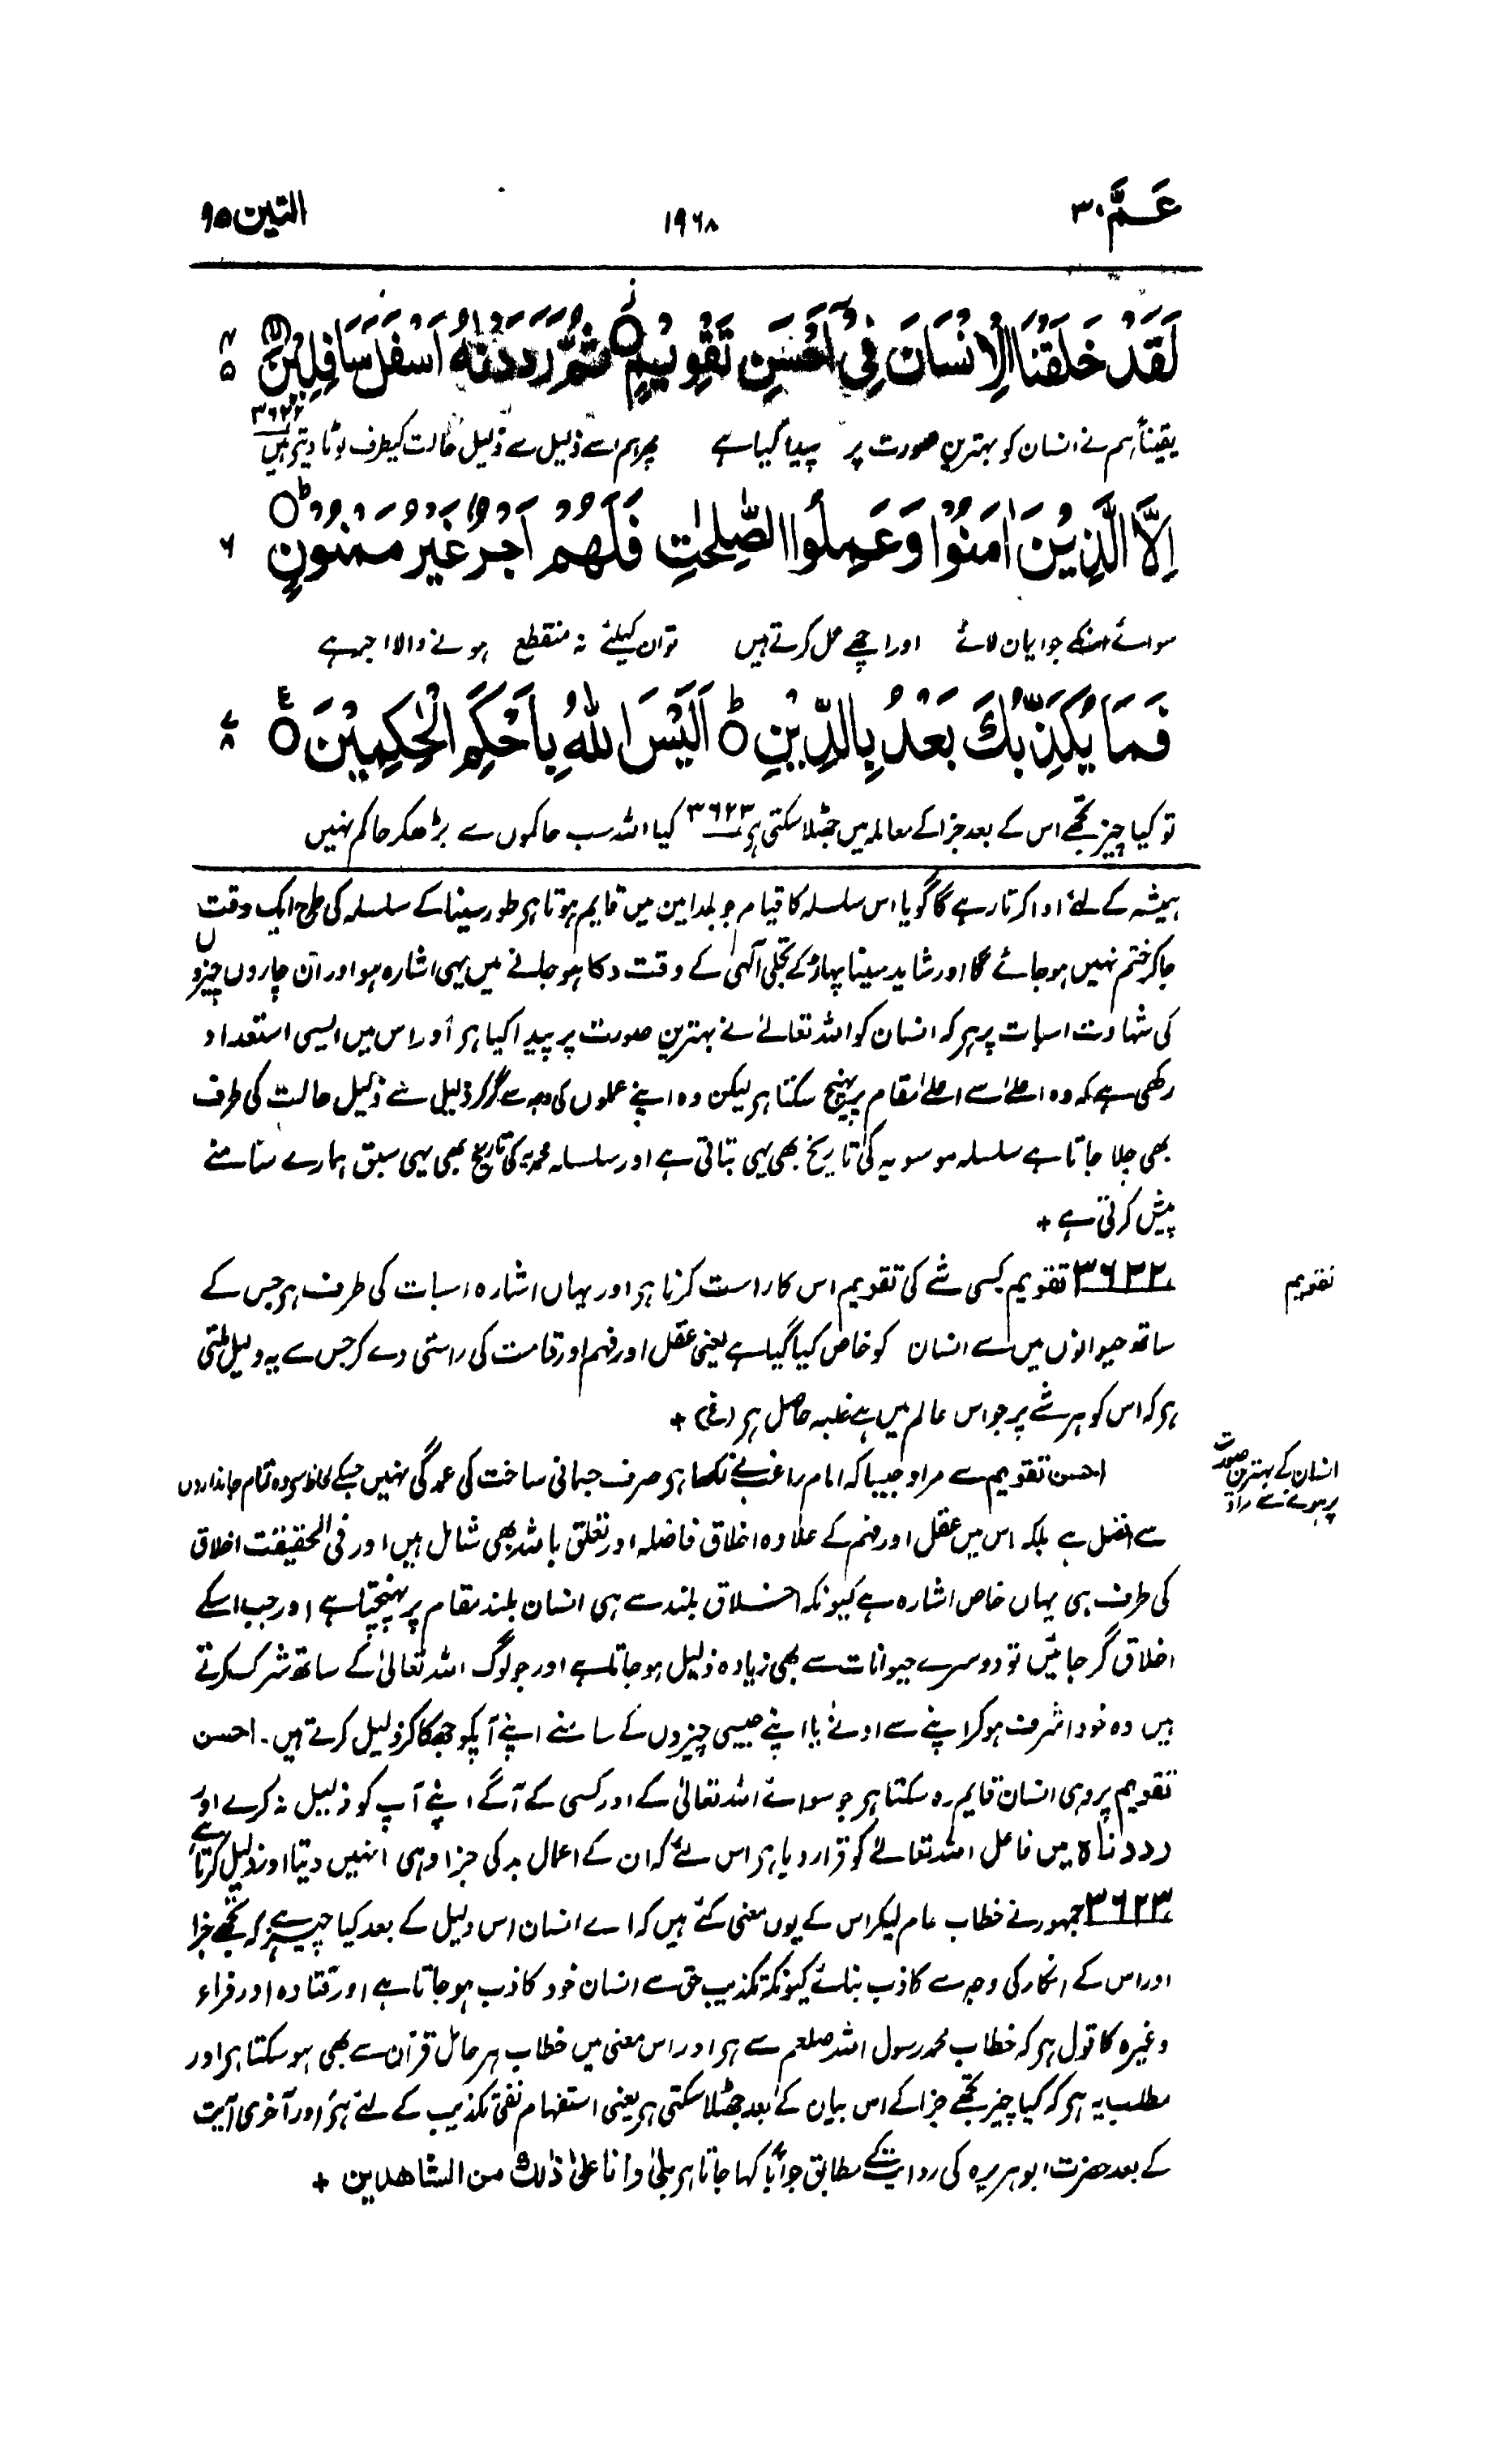 عَمَّ ۳۰
۱۹۶۸
التین ۹۵
لَقَدْ خَلَقْنَا الْاِنْسَانَ فِیْٓ اَحْسَنِ تَقْوِیْمٍ ○ ثُمَّ رَدَدْنٰهُ اَسْفَلَ سَافِلِیْنَ ○ ۴ ۵
یقیناً ہم نے انسان کو بہترین صورت پر پیدا کیا ہے پھر ہم اسے ذلیل سے ذلیل حالت کیطرف لوٹا دیتے ہیں ۳۶۲۲
اِلَّا الَّذِیْنَ اٰمَنُوْا وَعَمِلُوا الصّٰلِحٰتِ فَلَهُمْ اَجْرٌ غَیْرُ مَمْنُوْنٍ ○ؕ ۶
سوائے انکے جو ایمان لائے اور اچھے عمل کرتے ہیں تو ان کیلئے نہ منقطع ہونے والا اجر ہے
فَمَا یُكَذِّبُكَ بَعْدُ بِالدِّیْنِ ○ؕ اَلَیْسَ اللّٰهُ بِاَحْكَمِ الْحٰكِمِیْنَ ○ ۷ ۸
تو کیا چیز تجھے اس کے بعد جزا کے معاملہ میں جھٹلا سکتی ہر ۳۶۲۳ کیا اللہ سب حاکموں سے بڑھکر حاکم نہیں
ہمیشہ کے لئے ادا کرتا رہے گا گویا اس سلسلہ کا قیام جو بلد امین میں قایم ہوتا ہر طور سینا کے سلسلہ کی طرح ایک وقت
جاکر ختم نہیں ہوجائے گا اور شاید سینا پہاڑ کے تجلی آلہی کے وقت دکا ہو جانے میں یہی اشارہ ہو اور ان چاروں چیزوں
کی شہادت اسبات پر ہر کہ انسان کو اللہ تعالےٰ نے بہترین صورت پر پیدا کیا ہر اور اس میں ایسی استعداد
رکھی ہے کہ وہ اعلےٰ سے اعلےٰ مقام پر پہنچ سکتا ہر لیکن وہ اپنے عملوں کی وجہ سے گر کر ذلیل سے ذلیل حالت کی طرف
بھی چلا جاتا ہے سلسلہ موسویہ کی تاریخ بھی یہی بتاتی ہے اور سلسلہ محمدیہ کی تاریخ بھی یہی سبق ہمارے سامنے
پیش کرتی ہے +
تقویم
۳۶۲۲ تقویم کسی شے کی تقویم اس کا راست کرنا ہر اور یہاں اشارہ اسبات کی طرف ہر جس کے
ساتھ حیوانوں میں سے انسان کو خاص کیا گیا ہے یعنی عقل اور فہم اور قامت کی راستی دے کر جس سے یہ دلیل ملتی
ہر کہ اس کو ہر شے پر جو اس عالم میں ہے غلبہ حاصل ہر (غ) +
انسان کے بہترین صورت
پر ہونے سے مراد
احسن تقویم سے مراد جیسا کہ امام راغب نے لکھا ہر صرف جسمانی ساخت کی عمدگی نہیں جسکے لحاظ سے وہ تمام جانداروں
سے افضل ہے بلکہ اس میں عقل اور فہم کے علاوہ اخلاق فاضلہ اور تعلق باللہ بھی شامل ہیں اور فی الحقیقت اخلاق
کی طرف ہی یہاں خاص اشارہ ہے کیونکہ اخلاق بلند سے ہی انسان بلند مقام پر پہنچتا ہے اور جب اسکے
اخلاق گر جائیں تو دوسرے حیوانات سے بھی زیادہ ذلیل ہوجاتا ہے اور جو لوگ اللہ تعالیٰ کے ساتھ شرک کرتے
ہیں وہ خود اشرف ہوکر اپنے سے ادنےٰ یا اپنے جیسی چیزوں کے سامنے اپنے آپکو جھکا کر ذلیل کرتے ہیں۔ احسن
تقویم پر وہی انسان قایم رہ سکتا ہر جو سوائے اللہ تعالیٰ کے اور کسی کے آگے اپنے آپ کو ذلیل نہ کرے اور
رددناہ میں فاعل اللہ تعالےٰ کو قرار دیا ہر اس لئے کہ ان کے اعمال بد کی جزا وہی انہیں دیتا اور ذلیل کرتا ہے
۳۶۲۳ جمہور نے خطاب عام لیکر اس کے یوں معنی کئے ہیں کہ اے انسان اس دلیل کے بعد کیا چیز ہے کہ تجھے جزا
اور اس کے انکار کی وجہ سے کاذب بنائے کیونکہ تکذیب حق سے انسان خود کاذب ہوجاتا ہے اور قتادہ اور فراء
وغیرہ کا قول ہر کہ خطاب محمد رسول اللہ صلعم سے ہر اور اس معنی میں خطاب ہر حامل قرآن سے بھی ہوسکتا ہر اور
مطلب یہ ہر کہ کیا چیز تجھے جزا کے اس بیان کے بعد جھٹلا سکتی ہر یعنی استفہام نفی تکذیب کے لئے ہر اور آخری آیت
کے بعد حضرت ابو ہریرہ کی روایت کے مطابق جواباً کہا جاتا ہر بلیٰ وانا علیٰ ذٰلک من الشاھدین +